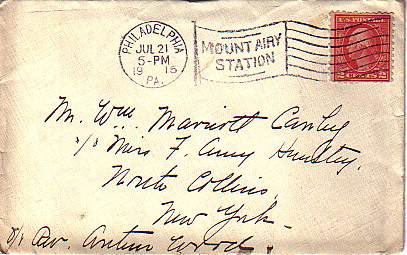 PHILADELPHIA
JUL 21
5-PM
1915
PA.
MOUNT AIRY
STATION
U.S. POSTAGE
2 CENTS 2
Mr. Wm. Marriott Canby
c/o Mrs F. Amy Huntley,
North Collins,
New York.
c/o Rev. Arthur Wood.